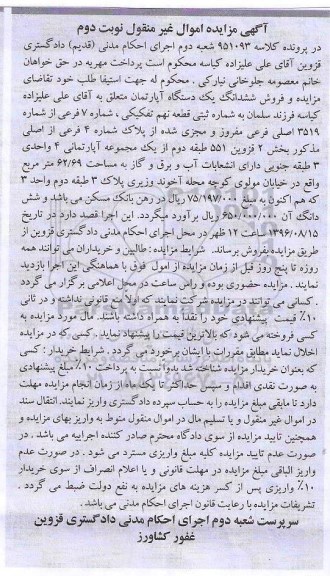 آگهی مزایده اموال غیر منقول نوبت دوم
در پرونده کلاسه ۹۵۱۰۹۳ شعبه دوم اجرای احکام مدنی (قدیم) دادگستری
قزوین آقای علی علیزاده کیاسه محکوم است پرداخت مهریه در حق خواهان
خانم معصومه جلوخانی نیارکی. محکوم له جهت استیفا طلب خود تقاضای
مزایده و فروش ششدانگ یک دستگاه آپارتمان متعلق به آقای علی علیزاده
کیاسه فرزند سلمان به شماره ثبتی قطعه نهم تفکیکی، شماره ۷ فرعی از شماره
۳۵۱۹ اصلی فرعی مفروز و مجزی شده از پلاک شماره ۴ فرعی از اصلی
مذکور بخش ۲ قزوین ۵۵۱ طبقه دوم از یک مجموعه آپارتمانی ۴ واحدی
۳ طبقه جنوبی دارای انشعابات آب و برق و گاز به مساحت ۶۲/۶۹ متر مربع
واقع در خیابان مولوی کوچه محله آخوند وزیری پلاک ۳ طبقه دوم واحد ۳
که هم اکنون به مبلغ ۷۵/۱۹۷/۰۰۰ ریال در رهن بانک مسکن می باشد و شش
دانگ آن ۶۵۰/۰۰۰/۰۰۰ ریال برآورد میگردد. این اجرا قصد دارد در تاریخ
۱۳۹۶/۰۸/۱۵ ساعت ۱۲ ظهر در محل اجرای احکام مدنی دادگستری قزوین از
طریق مزایده بفروش برساند. شرایط مزایده: طالبین و خریداران می توانند همه
روزه تا پنج روز قبل از زمان مزایده از امول فوق با هماهنگی این اجرا بازدید
نمایند. مزایده حضوری بوده و راس ساعت در محل اعلامی برگزار می گردد
. کسانی می توانند در مزایده شرکت نمایند که اولا منع قانونی نداشته و در ثانی
۱۰٪ قیمت پیشنهادی خود را نقدا به همراه داشته باشند. مال مورد مزایده به
کسی فروخته می شود که بالاترین قیمت را پیشنهاد نماید. کسی که در مزایده
اخلال نماید مطابق مقررات با ایشان برخورد می گردد. شرایط خریدار: کسی
که بعنوان خریدار مزایده شناخته شد بدوا نسبت به پرداخت ۱۰٪ مبلغ پیشنهادی
به صورت نقدی اقدام و سپس حداکثر تا یک ماه از زمان انجام مزایده مهلت
دارد تا مابقی مبلغ مزایده را به حساب سپرده دادگستری واریز نمایند. انتقال سند
در اموال غیر منقول و یا تسلیم مال در اموال منقول منوط به واریز بهای مزایده و
همچنین تایید مزایده از سوی دادگاه محترم صادر کننده اجراییه می باشد. در
صورت عدم تایید مزایده کلیه مبلغ واریزی مسترد می شود. در صورت عدم
واریز الباقی مبلغ مزایده در مهلت قانونی و یا اعلام انصراف از سوی خریدار
۱۰٪ واریزی پس از کسر هزینه های مزایده به نفع دولت ضبط می گردد.
تشریفات مزایده با رعایت قانون اجرای احکام مدنی می باشد.
سرپرست شعبه دوم اجرای احکام مدنی دادگستری قزوین
غفور کشاورز